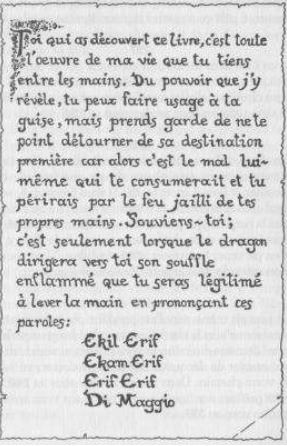 Toi qui as découvert ce livre, c'est toute
l'oeuvre de ma vie que tu tiens
entre les mains. Du pouvoir que j'y
révèle, tu peux faire usage à ta
guise, mais prends garde de ne te
point détourner de sa destination
première car alors c'est le mal lui-
même qui te consumerait et tu
périrais par le feu jailli de tes
propres mains. Souviens-toi;
c'est seulement lorsque le dragon
dirigera vers toi son souffle
enflammé que tu seras légitimé
à lever la main en prononçant ces
paroles:
Ekil Erif
Ekam Erif
Erif Erif
Di Maggio